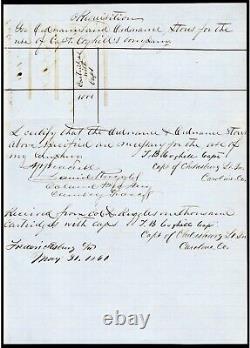 Requisition
For Ordnance and Ordnance Stores for the
use of Capt. Coghill's company.
Cartridges
with
Caps
1000
I certify that the Ordnance & Ordnance Stores
above specified are necessary for the use of
my company
T.B. Coghill Capt
Approved
Capt of
Caroline Co.
Daniel Ruggles
Colonel
Received from Col. Ruggles one thousand
Cartridges with caps
T B Coghill Capt
Capt of
Caroline Co.
Fredericksburg Va
May 31. 1861